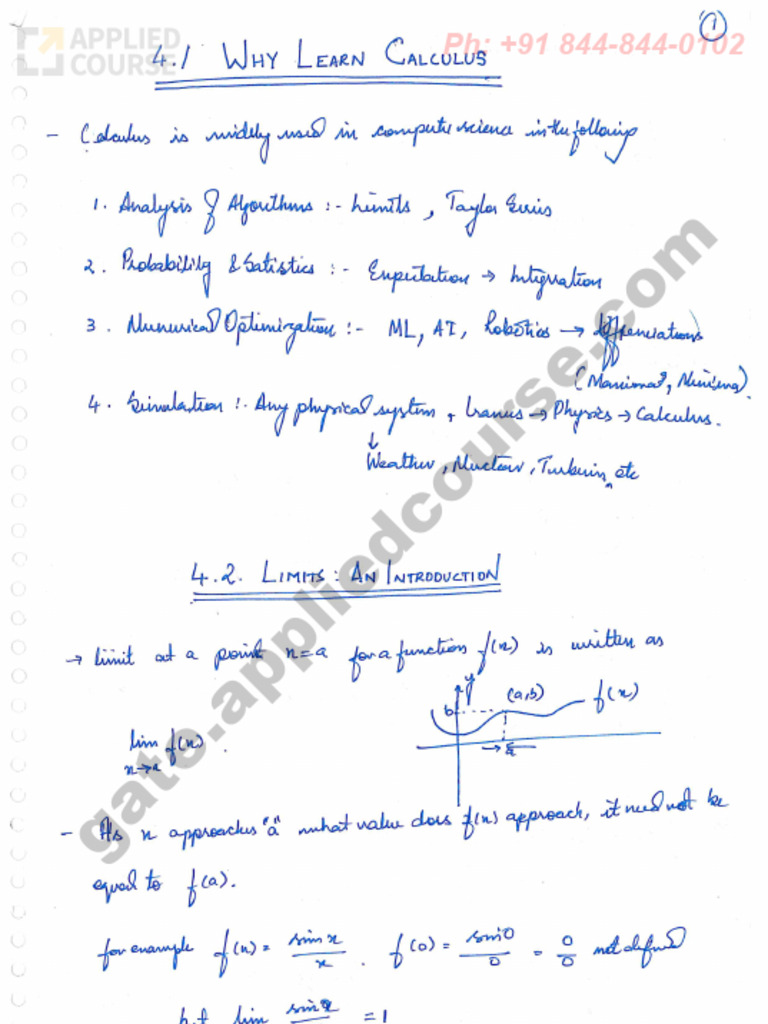 ①
APPLIED
COURSE
Ph: +91 844-844-0102
4.1 WHY LEARN CALCULUS
- Calculus is widely used in computer science in the following
1. Analysis of Algorithms :- Limits, Taylor Series
2. Probability & Statistics :- Expectation → Integration
3. Numerical Optimization :- ML, AI, Robotics → differenciations
(Maxima, Minima).
4. Simulation :- Any physical system, → Physics → Calculus.
↓
Weather, Nuclear, Turbines, etc
4.2. LIMITS: AN INTRODUCTION
→ limit at a point x=a for a function f(x) is written as
y
b (a,b) f(x)
lim f(x).
x→a
→ a ←
- As x approaches "a" what value does f(x) approach, it need not be
equal to f(a).
for example f(x) = sin x / x . f(0) = sin 0 / 0 = 0/0 not defined
but lim sin x = 1
gate.appliedcourse.com